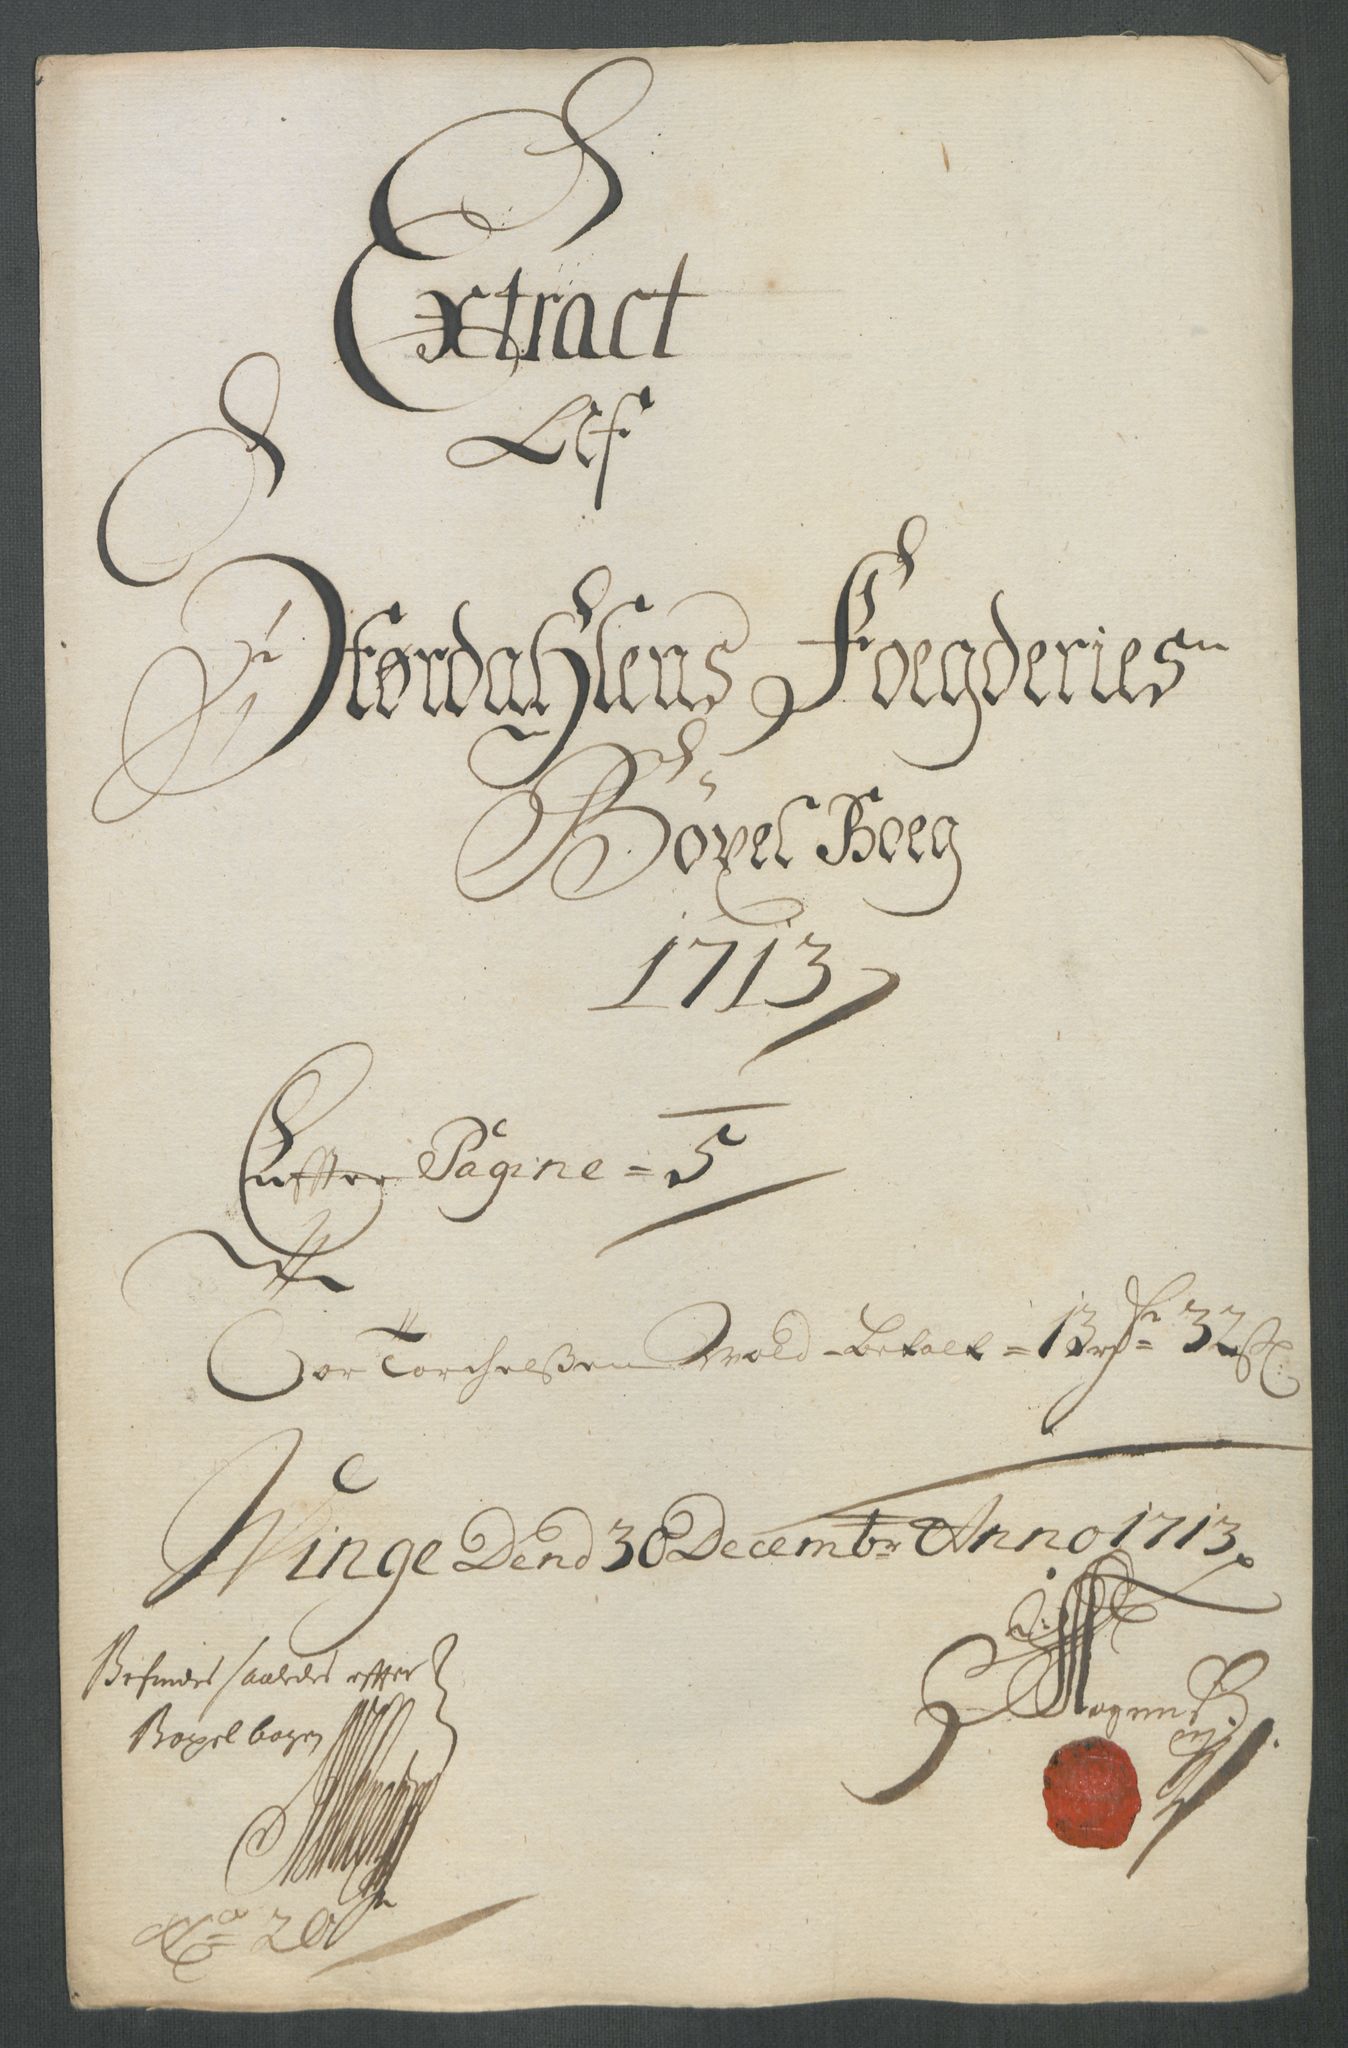 Extract
Af
Størdahlens Foegderies
Böxel Boeg
1713
Effter Pagine = 5
Tor Torchelßen Wold betalt = 13 rdr 32 ß:
Winge Dend 30 Decembr Anno 1713
Befindes saaledes effter
Boxel bogen
No 20